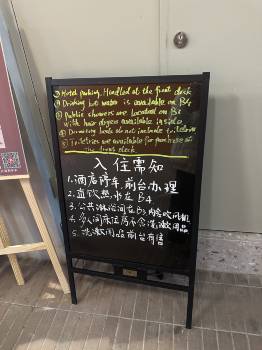 ① Hotel parking: Handled at the front desk
② Drinking hot water is available on B4
③ Public showers are located on B3
with hair dryers available inside
④ Dormitory beds do not include toiletries
⑤ Toiletries are available for purchase at
the front desk
入住需知
1.酒店停车,前台办理
2.直饮热水在B4
3.公共淋浴间在B3,内含吹风机
4.多人间床位房不含洗漱用品
5.洗漱用品前台有售